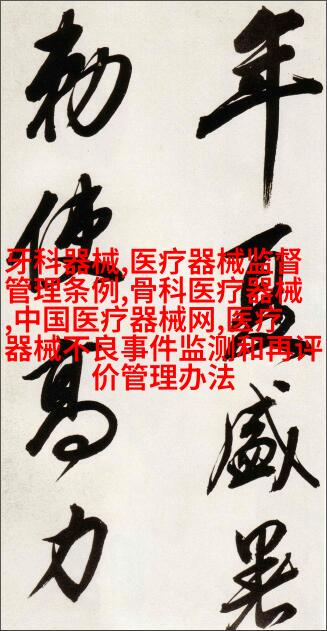 牙科器械,医疗器械监督
管理条例,骨科医疗器械
,中国医疗器械网,医疗
器械不良事件监测和再评
价管理办法
年夏盛暑
勅使高力